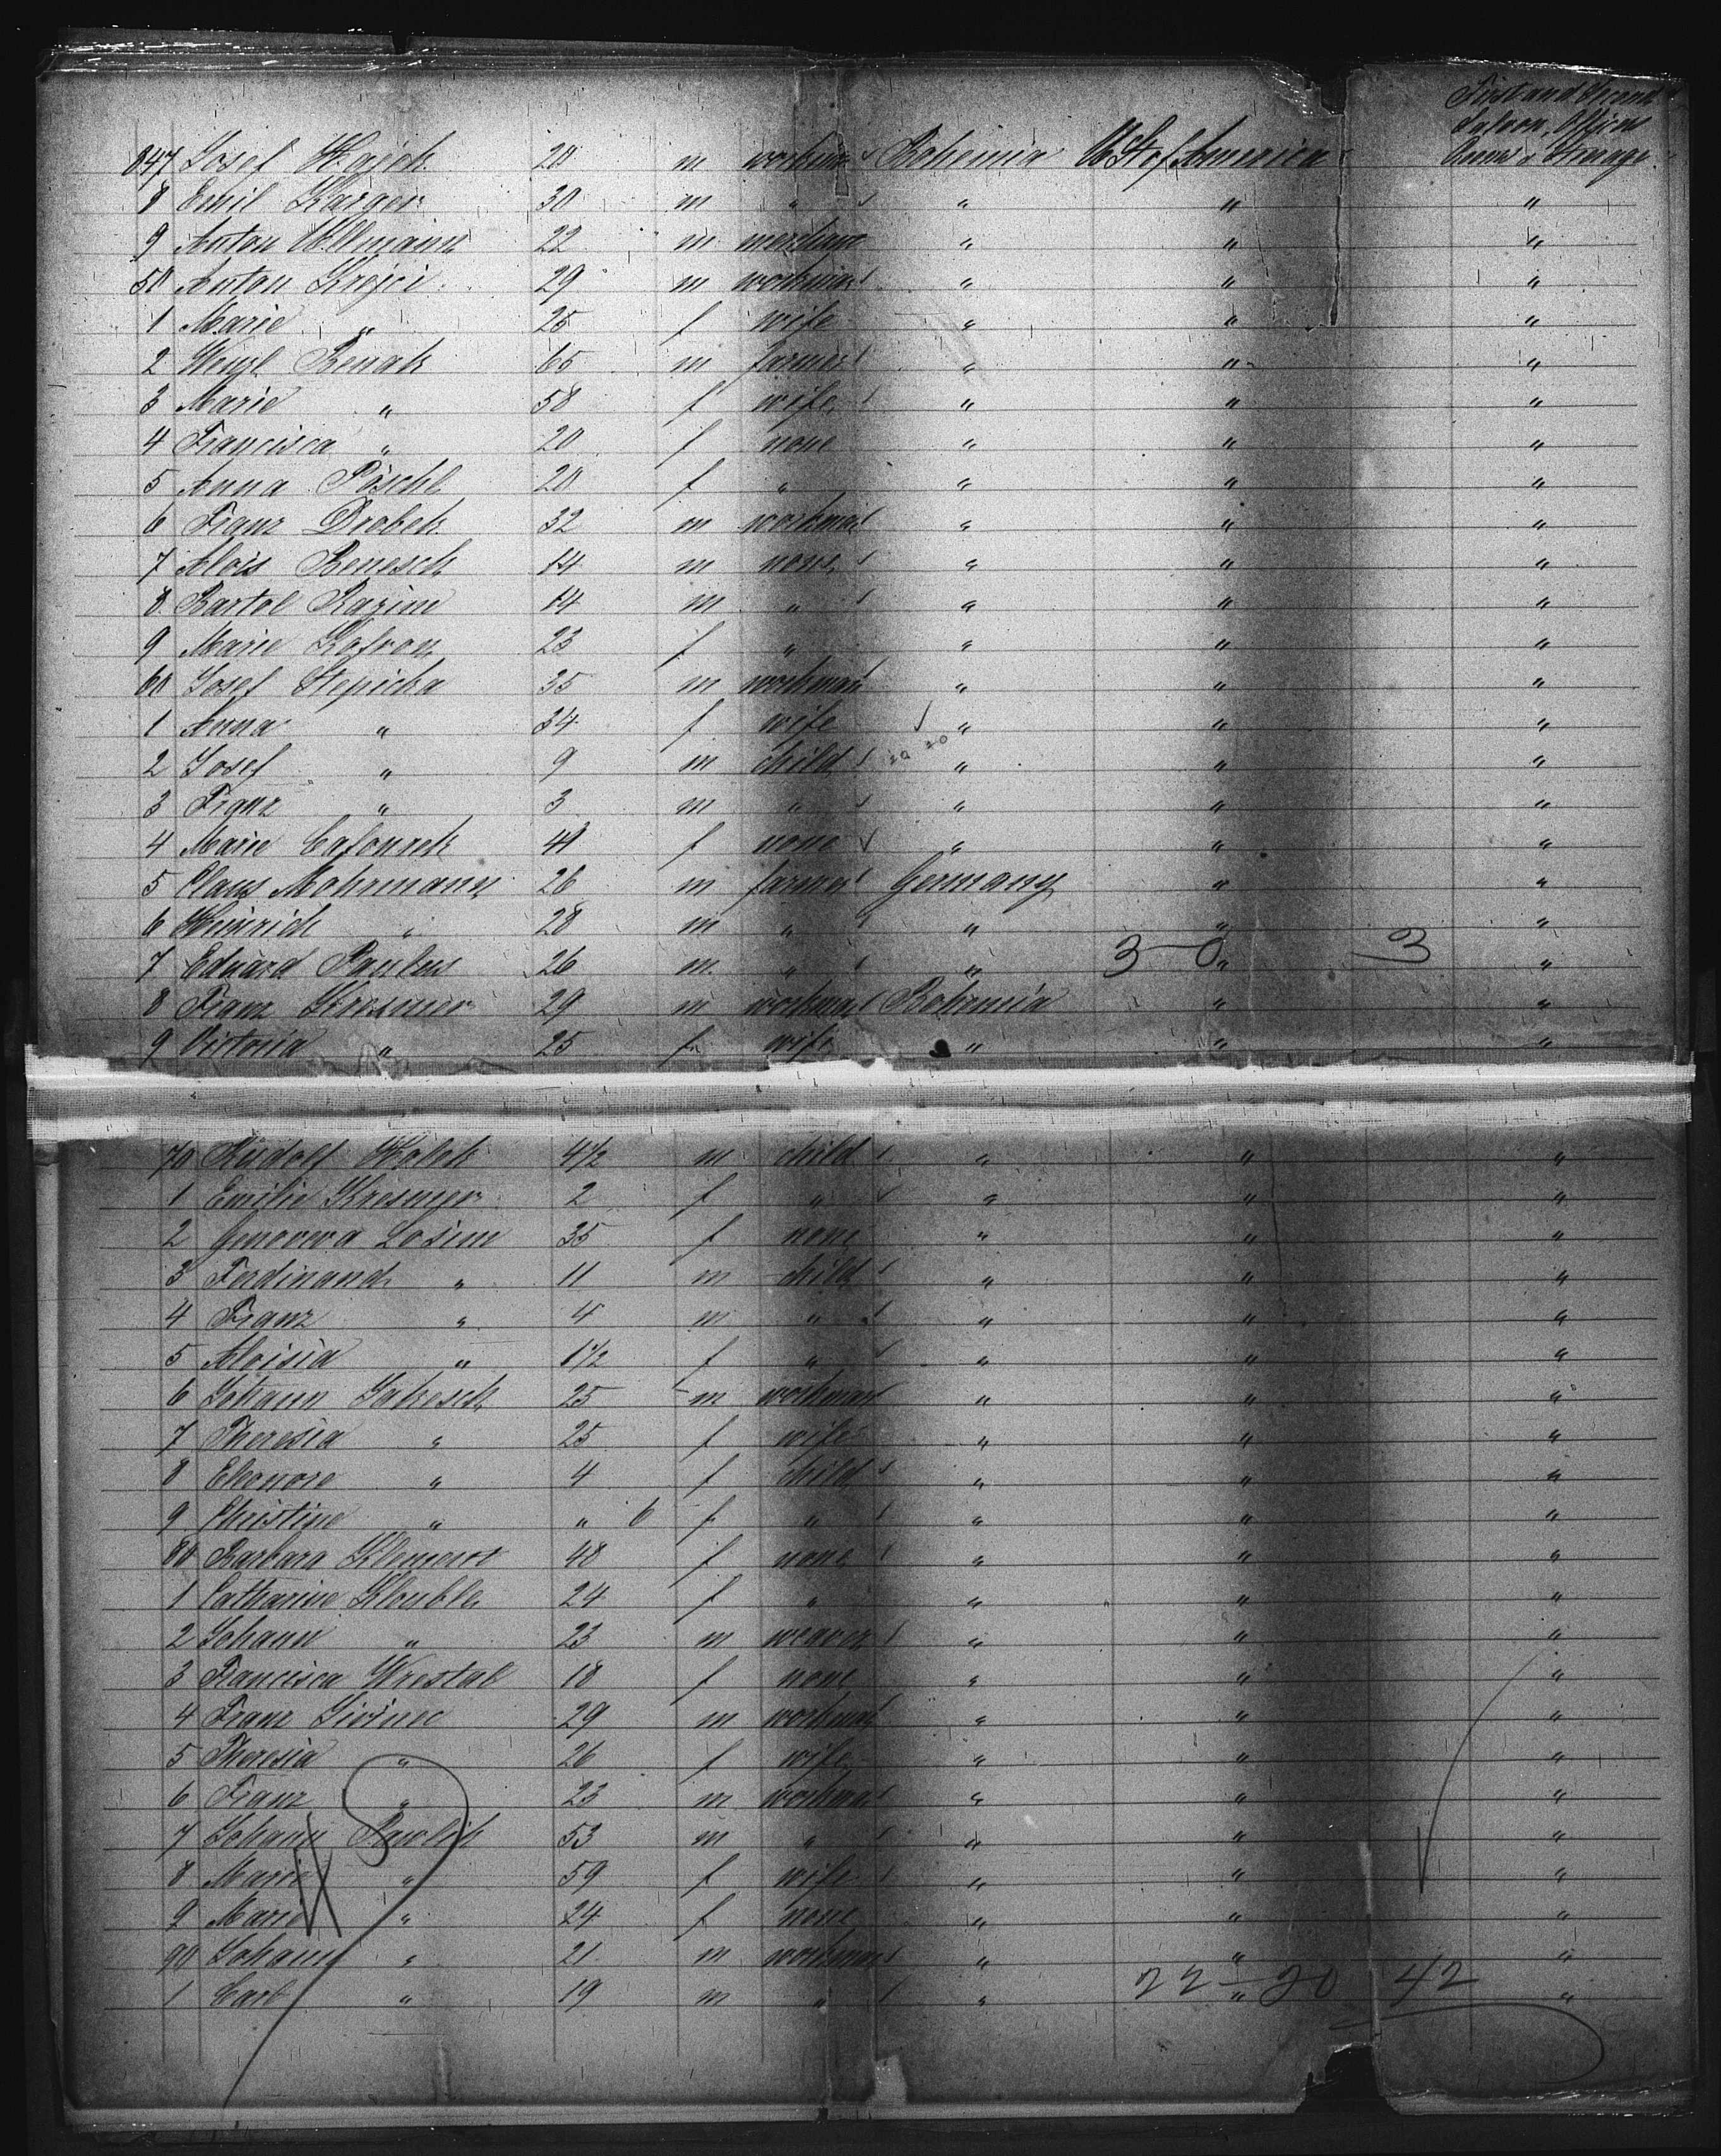 First and Second
Saloon, Officers
Rooms & Steerage
847 Josef Hajek 20 m workman Bohemia U St of America
8 Emil Karger 30 m " " " "
9 Anton Ullmann 22 m merchant " " "
50 Anton Krejci 29 m workman " " "
1 Marie " 25 f wife " " "
2 Wenzl Benak 65 m farmer " " "
3 Marie " 58 f wife " " "
4 Francisca " 20 f none " " "
5 Anna Pöschl 20 f " " " "
6 Franz Drobek 32 m workman " " "
7 Alois Benesch 14 m none " " "
8 Bartol Razim 14 m " " " "
9 Marie Kofron 23 f " " " "
60 Josef Stepicka 35 m workman " " "
1 Anna " 34 f wife " " "
2 Josef " 9 m child " " "
3 Franz " 3 m " " " "
4 Marie 41 f none " " "
5 Claus Mohrmann 26 m farmer Germany " "
6 Heinrich " 28 m " " " "
7 Eduard Paulus 26 m " " " " 3 - 0 3
8 Franz Kresmer 29 m workman Bohemia " "
9 Victoria " 25 f wife " " "
70 Rudolf Holek 4 1/2 m child " " "
1 Emilie Kresmer 2 f " " " "
2 Genoveva Losim 35 f none " " "
3 Ferdinand " 11 m child " " "
4 Franz " 4 m " " " "
5 Aloisia " 1 1/2 f " " " "
6 Johann Jakesch 25 m workman " " "
7 Theresia " 25 f wife " " "
8 Eleonore " 4 f child " " "
9 Christine " " 6 f " " " "
80 Barbara Klement 48 f none " " "
1 Catharine Klouble 24 f " " " "
2 Johann " 23 m weaver " " "
3 Francisca Wrestal 18 f none " " "
4 Franz 29 m workman " " "
5 Theresia " 26 f wife " " "
6 Franz " 23 m workman " " "
7 Johann Pawlik 53 m " " " "
8 Marie " 59 f wife " " "
9 Marie " 24 f none " " "
90 Johann " 21 m workman " " "
1 Carl " 19 m " " " " 22 - 20 42